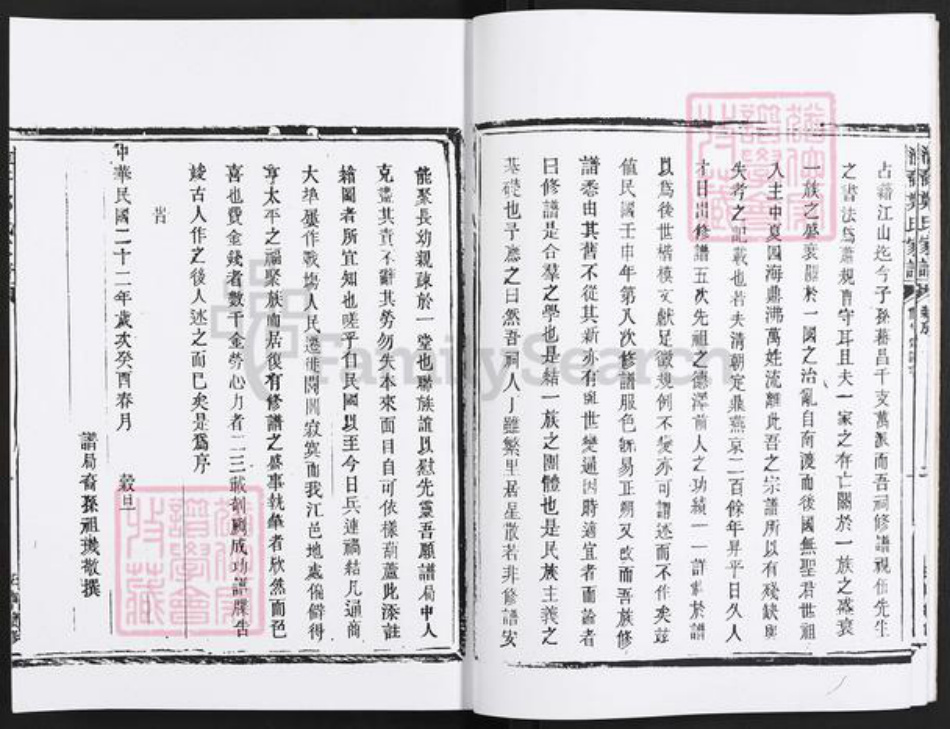 占籍江山迄今子孫蕃昌千支萬派而吾祠修譜視伍先生
之書法為蕭規曹守耳且夫一家之存亡關於一族之盛衰
一族之盛衰關於一國之治亂自南渡而後國無聖君世祖
入主中夏國海鼎沸萬姓流離此吾之宗譜所以有殘缺與
失考之記載也若夫清朝定鼎燕京二百餘年昇平日久人
才日出修譜五次先祖之德澤前人之功績一一詳載於譜
以為後世楷模文獻足徵規例不變亦可謂述而不作矣茲
值民國壬申年第八次修譜服色既易正朔又改而吾族修
譜悉由其舊不從其新亦有與世變通因時適宜者而論者
曰修譜是合羣之學也是結一族之團體也是民族主義之
基礎也予應之曰然吾祠人丁雖繁里居星散若非修譜安
能聚長幼親疎於一堂也聯族誼以慰先靈吾願譜局中人
克盡其責不辭其勞勿失本來面目自可依樣葫蘆此添註
繪圖者所宜知也嗟乎自民國以至今日兵連禍結凡通商
大埠屢作戰塲人民遷徙閭閻寂寞而我江邑地處偏僻得
享太平之福聚族而居復有修譜之盛事執筆者欣然而色
喜也費金錢者數千金勞心力者二三載剞劂成功譜牒告
竣古人作之後人述之而已矣是為序
旹
中華民國二十二年歲次癸酉春月 穀旦
譜局裔孫祖璣敬撰
FamilySearch